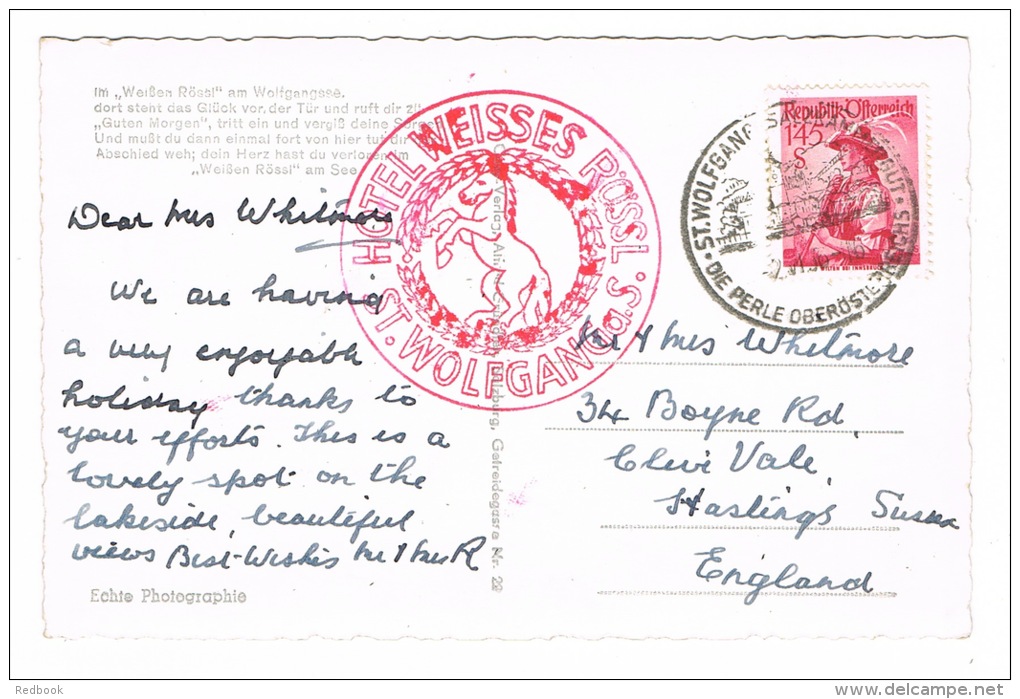 Im „Weißen Rössl" am Wolfgangsee.
dort steht das Glück vor der Tür und ruft dir zu:
„Guten Morgen", tritt ein und vergiß deine Sorgen
Und mußt du dann einmal fort von hier tut dir
Abschied weh; dein Herz hast du verloren im
„Weißen Rössl" am See
Dear Mrs Whitmore
We are having
a very enjoyable
holiday thanks to
your efforts. This is a
lovely spot on the
lakeside, beautiful
views Best-Wishes Mr & Mrs R
Echte Photographie
HOTEL WEISSES RÖSSL
ST. WOLFGANG a. S.
Verlag
Salzburg, Getreidegasse Nr. 22
Republik Österreich
1.45
S
WILTEN BEI INNSBRUCK
ST. WOLFGANG
DIE PERLE OBERÖSTERREICHS
Mr & Mrs Whitmore
34 Boyne Rd,
Clive Vale,
Hastings Sussex
England
Redbook
delcampe.net